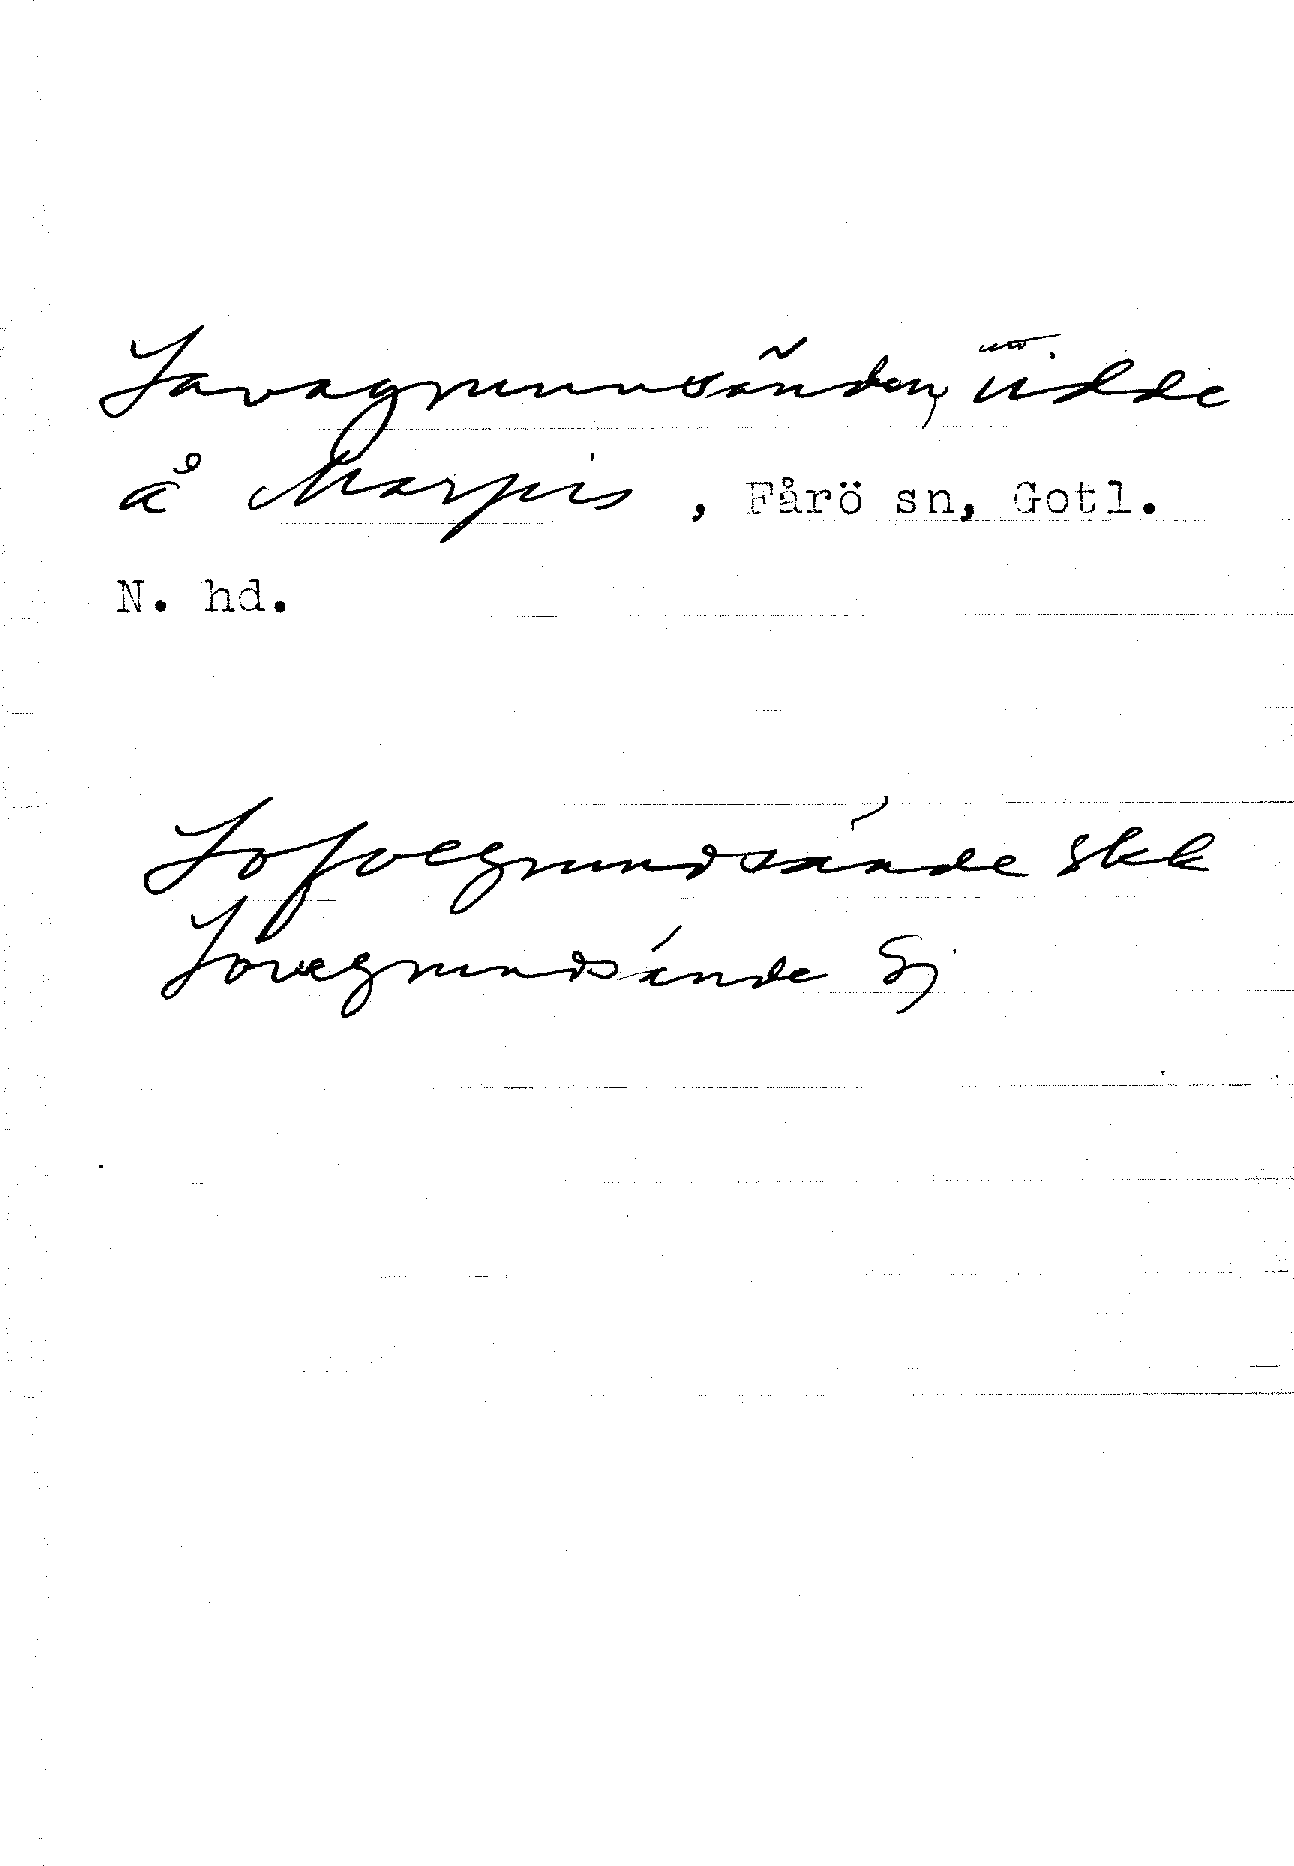 Lavagrunnsänden, udde
å Marpis, Fårö sn, Gotl.
N. hd.
Lofvegrundsände skk
Lovegrundsände Sj